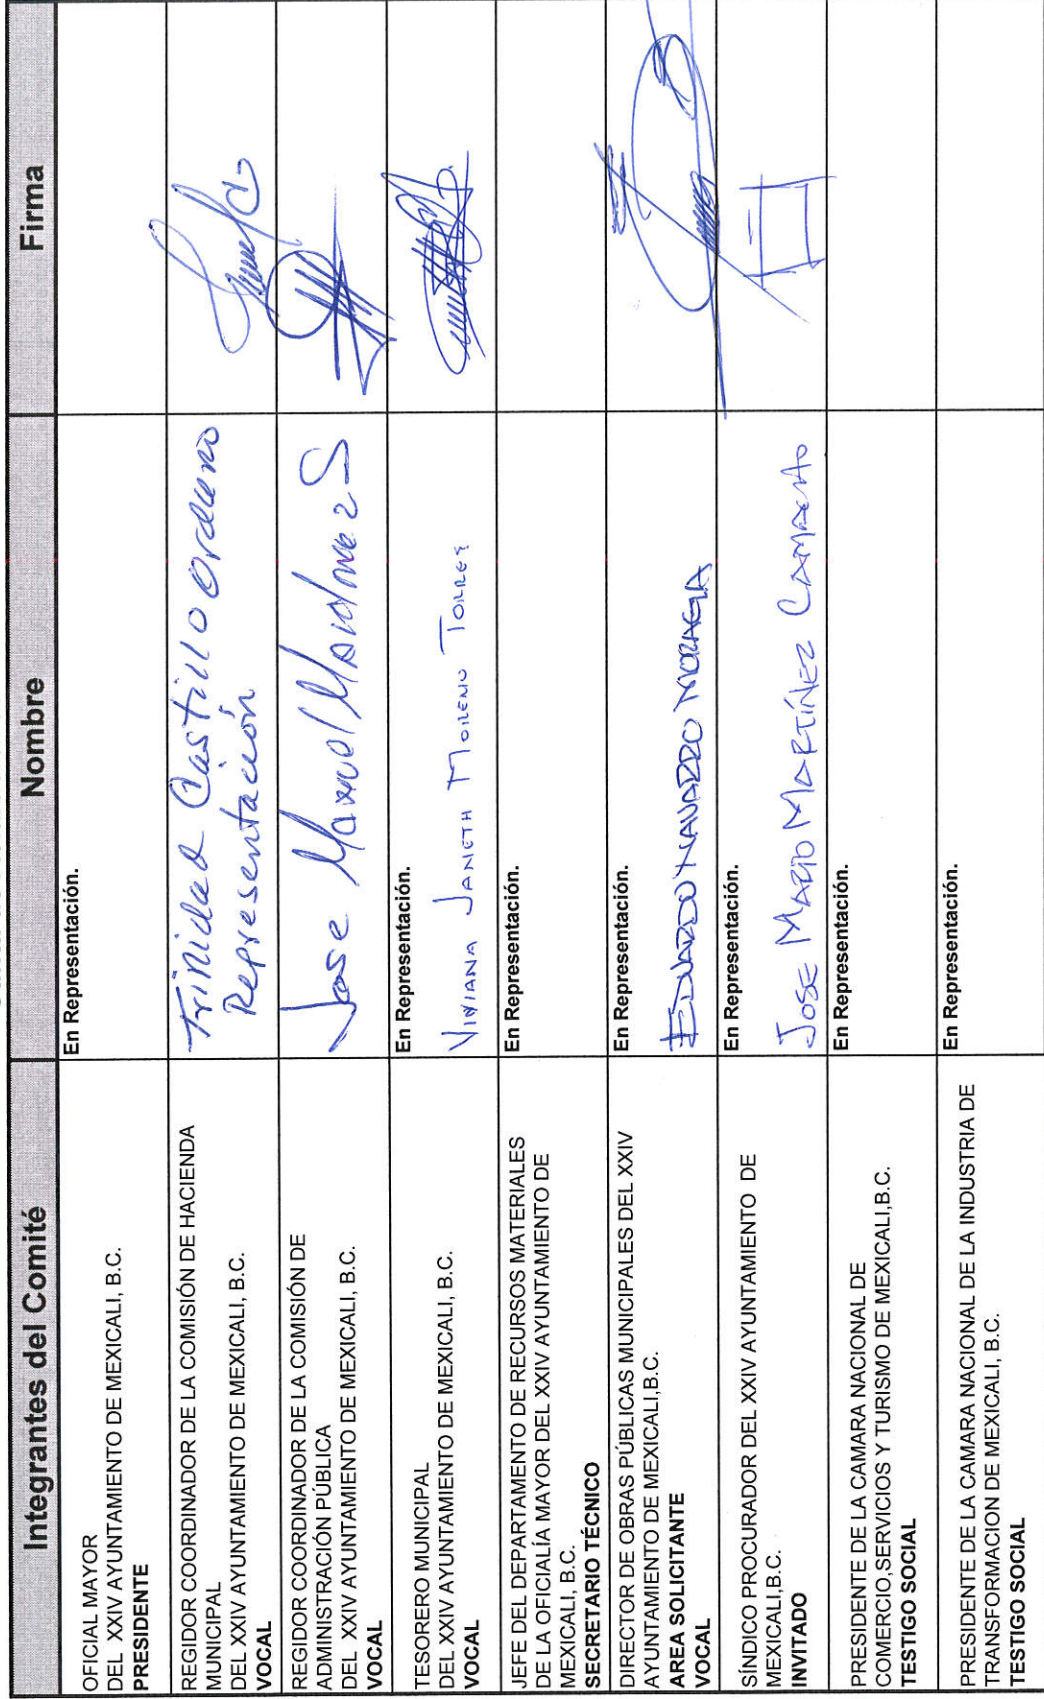 Integrantes del Comité
Nombre
Firma
OFICIAL MAYOR
DEL XXIV AYUNTAMIENTO DE MEXICALI, B.C.
PRESIDENTE
En Representación.
REGIDOR COORDINADOR DE LA COMISIÓN DE HACIENDA
MUNICIPAL
DEL XXIV AYUNTAMIENTO DE MEXICALI, B.C.
VOCAL
Trinidad Castillo Orduño
Representación
REGIDOR COORDINADOR DE LA COMISIÓN DE
ADMINISTRACIÓN PÚBLICA
DEL XXIV AYUNTAMIENTO DE MEXICALI, B.C.
VOCAL
Jose Manuel Martinez S
TESORERO MUNICIPAL
DEL XXIV AYUNTAMIENTO DE MEXICALI, B.C.
VOCAL
En Representación.
VIVIANA JANETH MORENO TORRES
JEFE DEL DEPARTAMENTO DE RECURSOS MATERIALES
DE LA OFICIALÍA MAYOR DEL XXIV AYUNTAMIENTO DE
MEXICALI, B.C.
SECRETARIO TÉCNICO
En Representación.
DIRECTOR DE OBRAS PÚBLICAS MUNICIPALES DEL XXIV
AYUNTAMIENTO DE MEXICALI,B.C.
AREA SOLICITANTE
VOCAL
En Representación.
EDUARDO NAVARRO MORAGA
SÍNDICO PROCURADOR DEL XXIV AYUNTAMIENTO DE
MEXICALI,B.C.
INVITADO
En Representación.
JOSE MARIO MARTÍNEZ CAMACHO
PRESIDENTE DE LA CAMARA NACIONAL DE
COMERCIO,SERVICIOS Y TURISMO DE MEXICALI,B.C.
TESTIGO SOCIAL
En Representación.
PRESIDENTE DE LA CAMARA NACIONAL DE LA INDUSTRIA DE
TRANSFORMACION DE MEXICALI, B.C.
TESTIGO SOCIAL
En Representación.